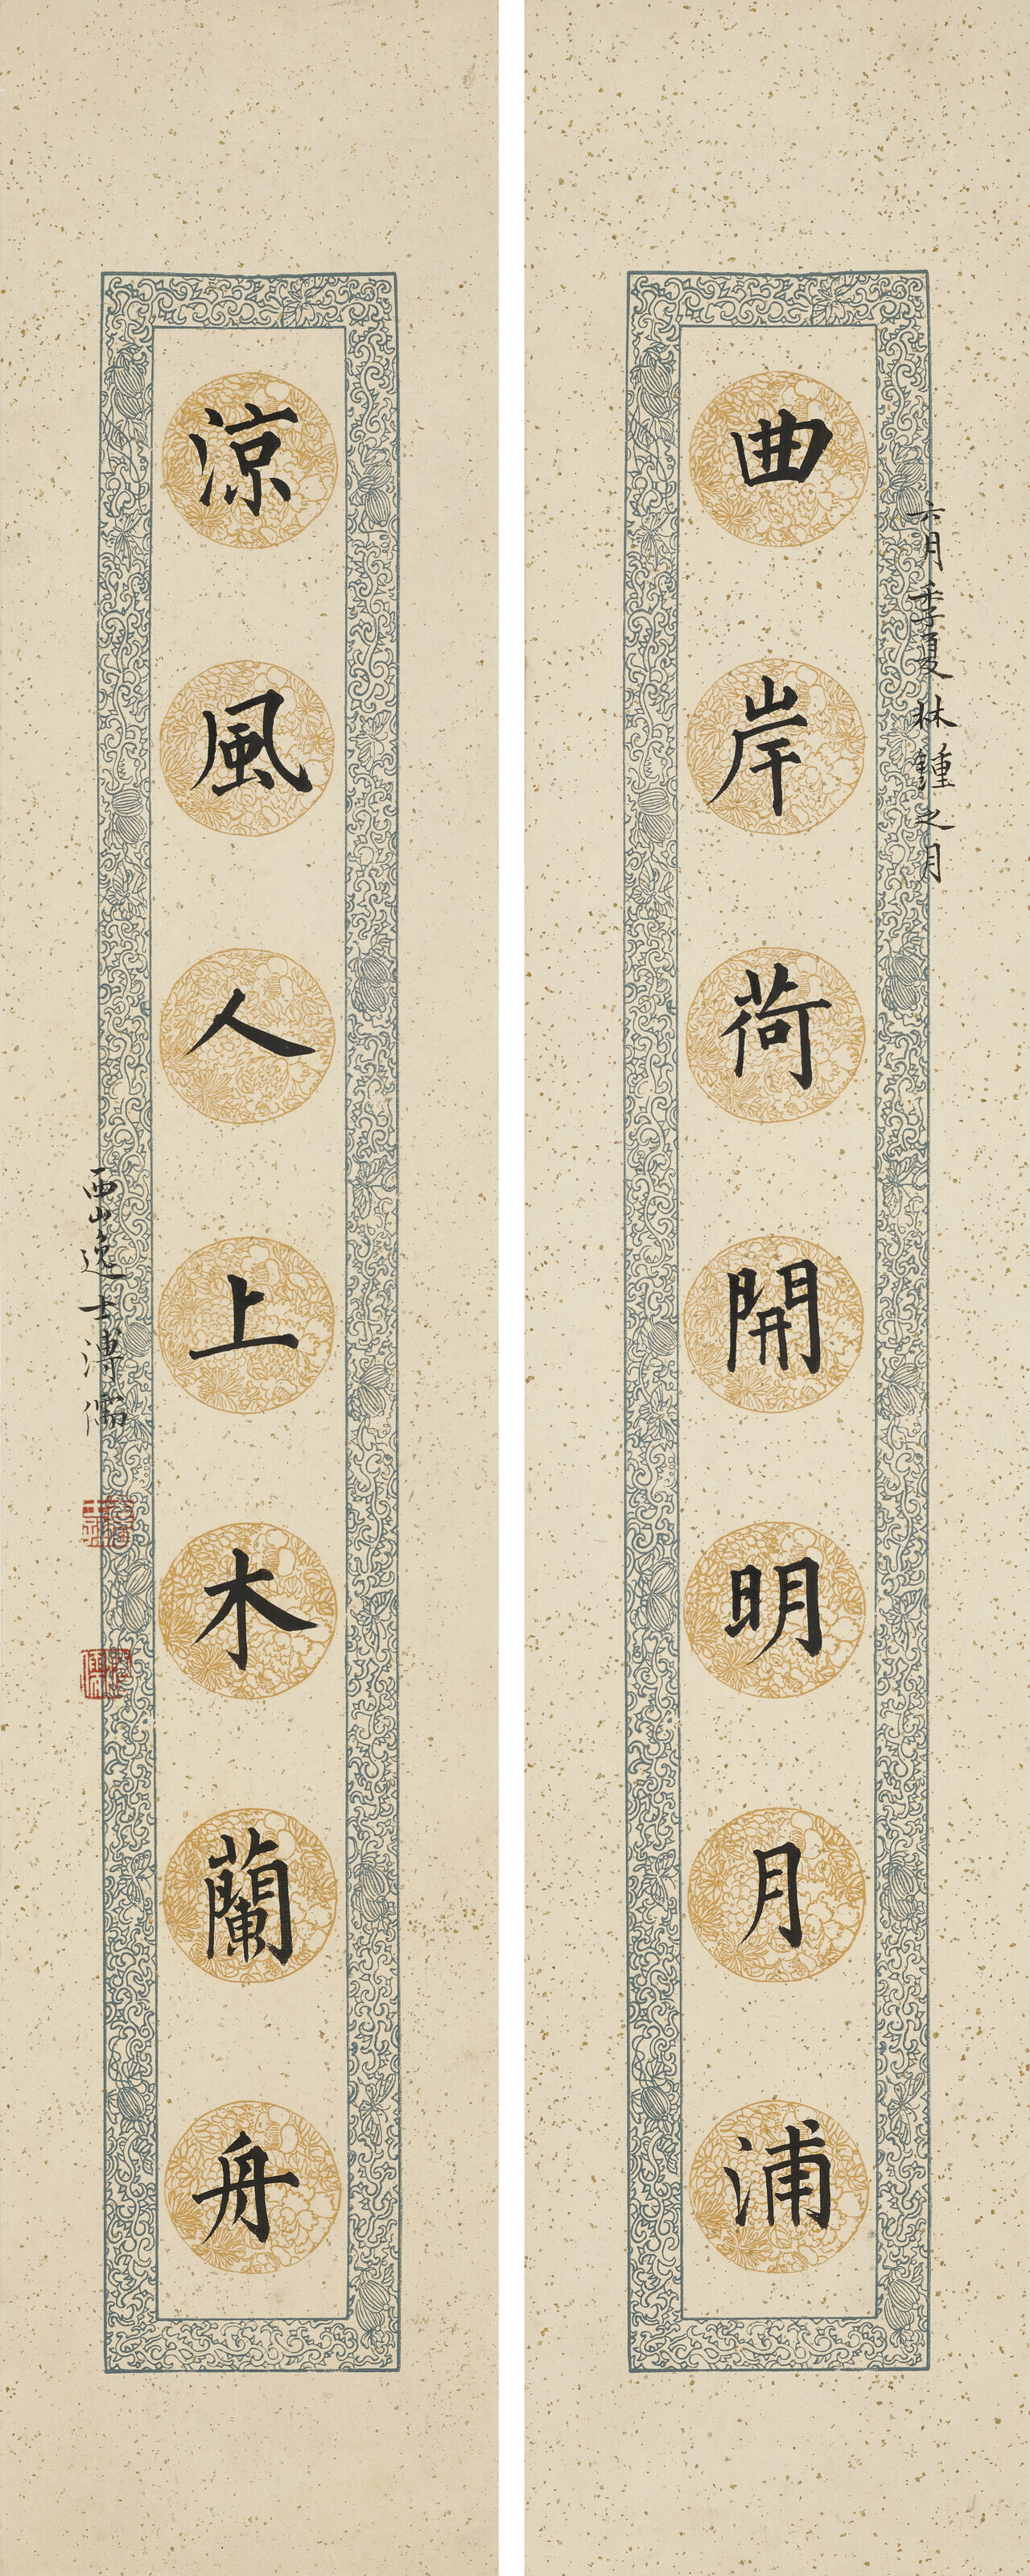 六月季夏林鍾之月
曲岸荷開明月浦
涼風人上木蘭舟
西山逸士溥儒